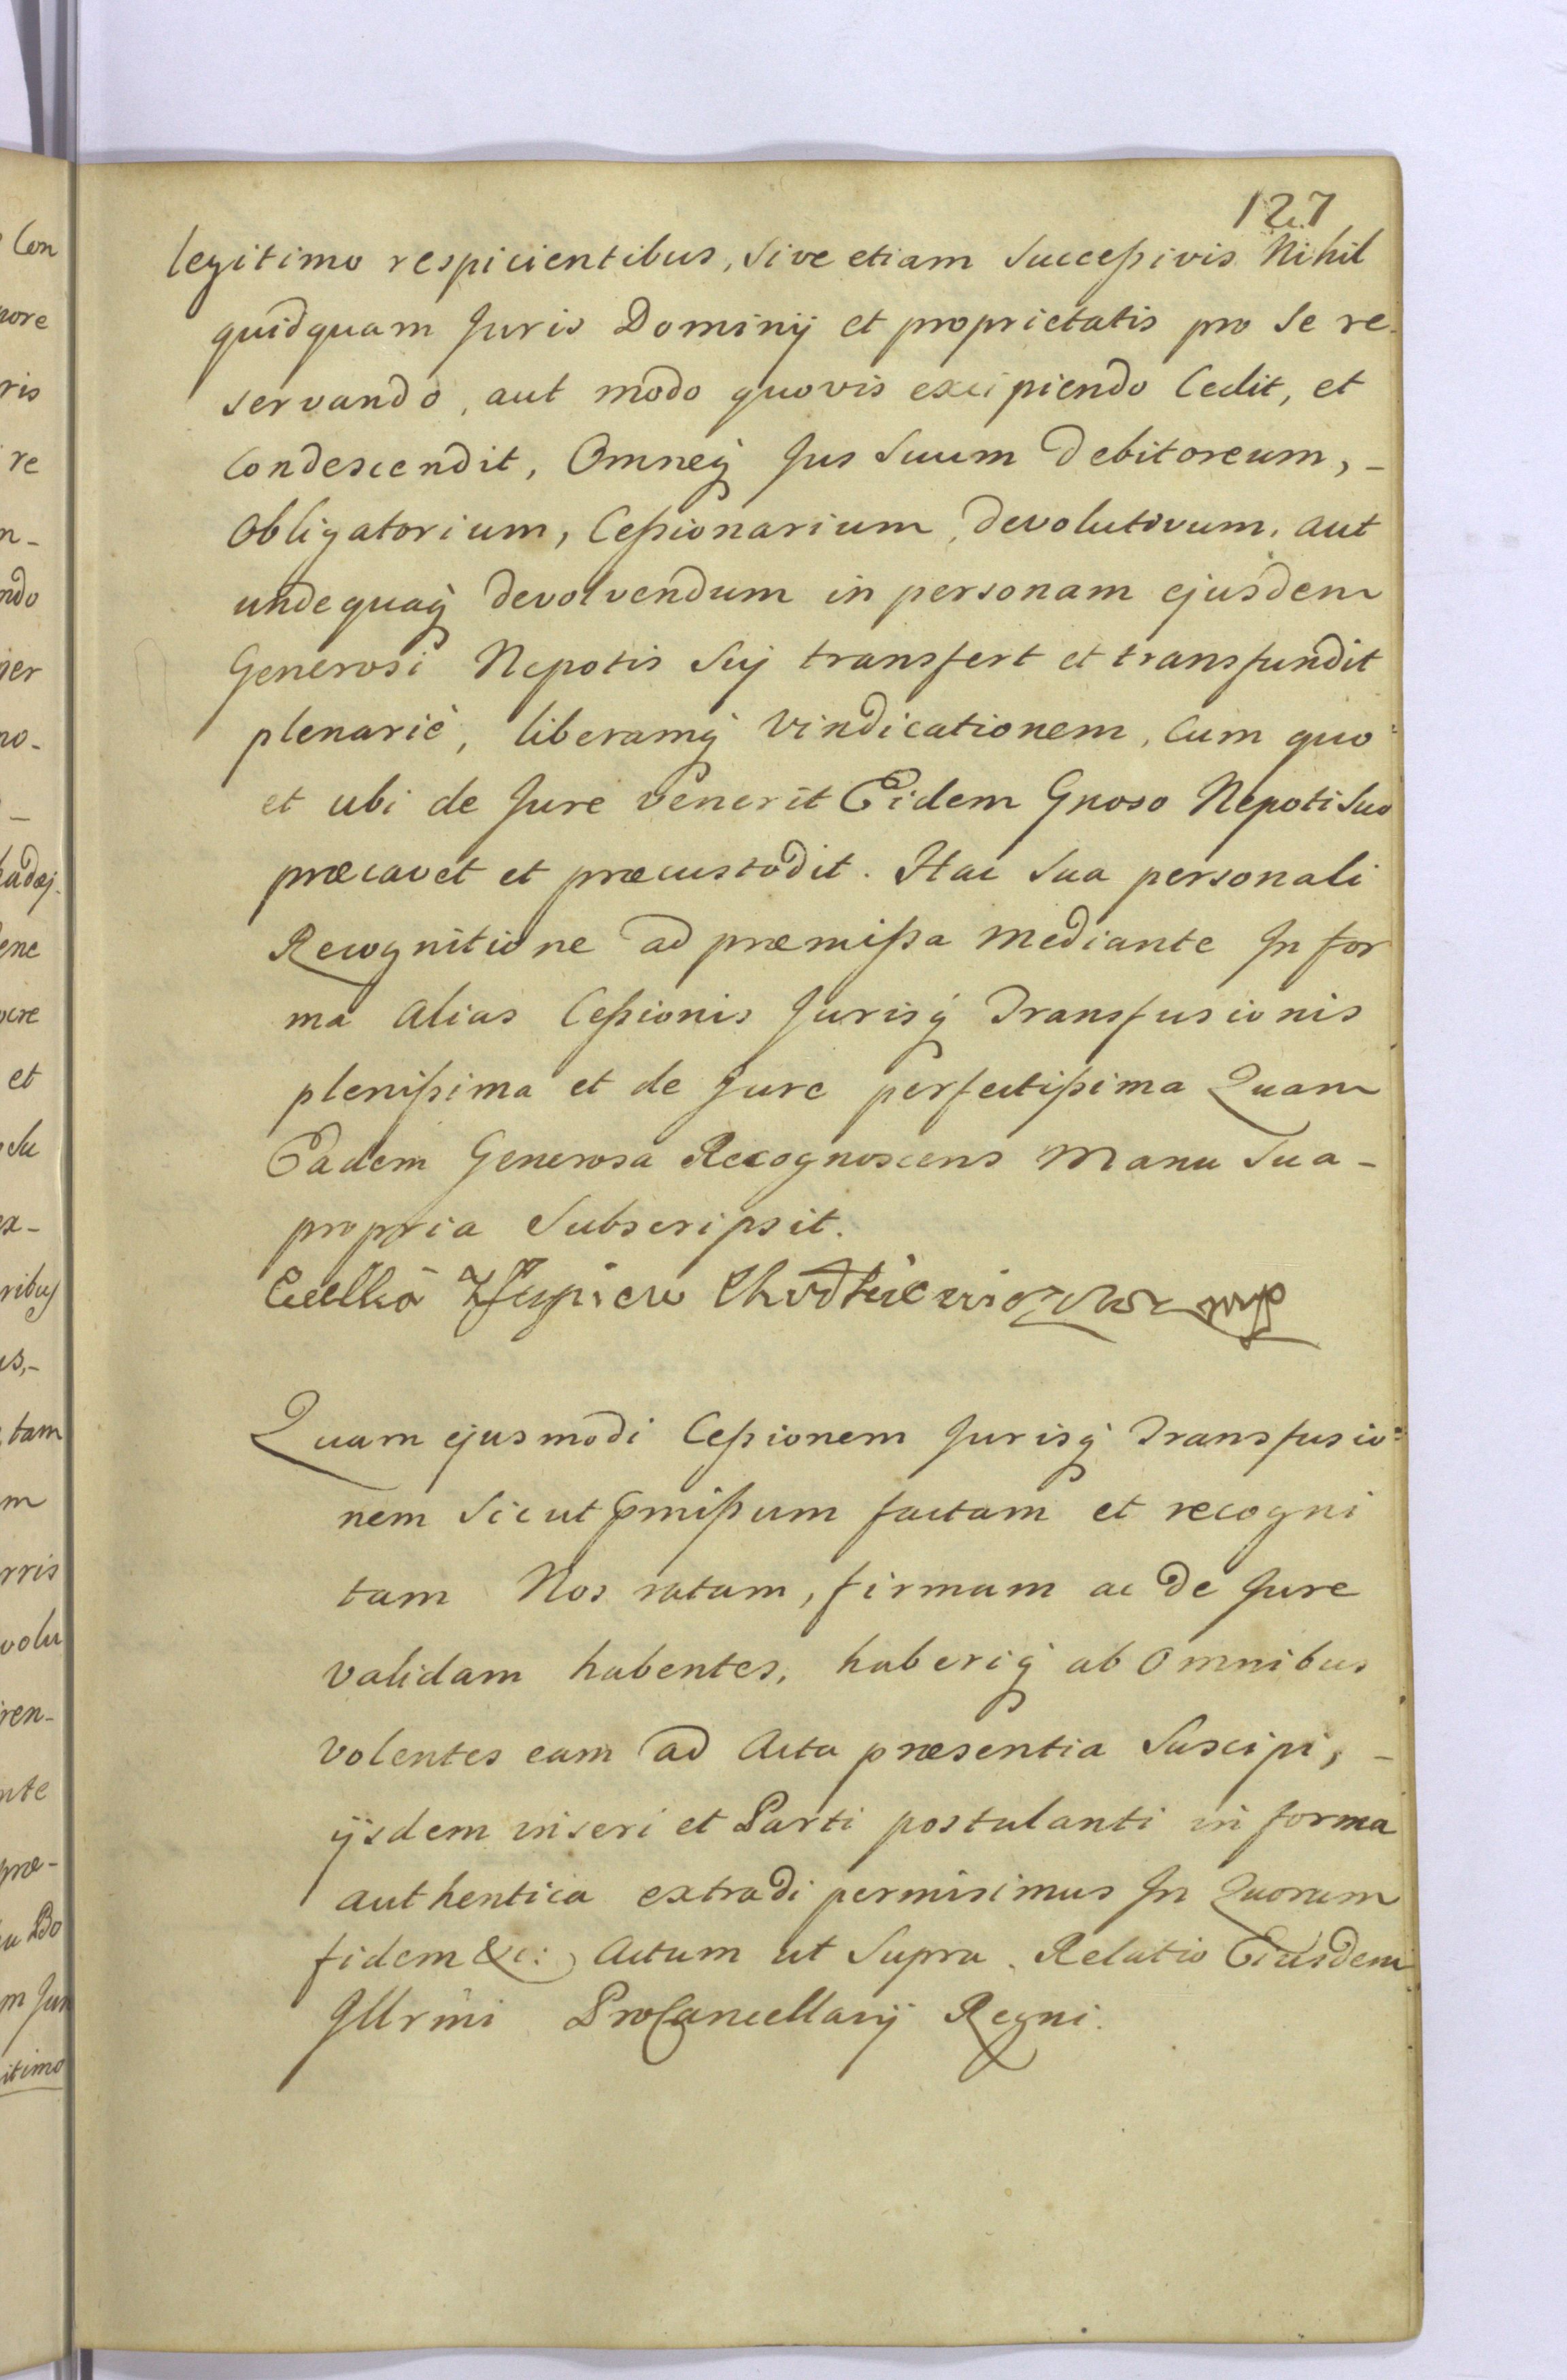 127
legitimo respicientibus, Sive etiam Successivis Nihil
quidquam Juris Dominij et proprietatis pro Se re-
servando, aut modo quovis excipiendo Cedit, et
Condescendit, Omneq̀ Jus Suum debitoreum, -
Obligatorium, Cessionarium, devolutivum, aut
undequaq̀ devolvendum in personam ejusdem
Generosi Nepotis Suj transfert et transfundit
plenariè, liberamq̀ Vindicationem, Cum quo
et ubi de Jure venerit Eidem Gnoso Nepoti Suo
præcavet et præcustodit. Hac Sua personali
Recognitione ad præmissa mediante In for
ma alias Cessionis Jurisq̀ Transfusionis
plenissima et de Jure perfectissima Quam
Eadem Generosa Recognoscens Manu Sua -
propria Subscripsit.
Quam ejusmodi Cessionem Jurisq̀ Transfusio=
nem Sicut pmissum factam et recogni
tam Nos ratam, firmam ac de Jure
validam habentes, haberiq̀ ab Omnibus
volentes eam ad Acta præsentia Suscipi, -
ijsdem inseri et Parti postulanti in forma
authentica extradi permisimus In Quorum
fidem &c: Actum ut Supra. Relatio Eiusdem
Illrmi ProCancellarij Regni.